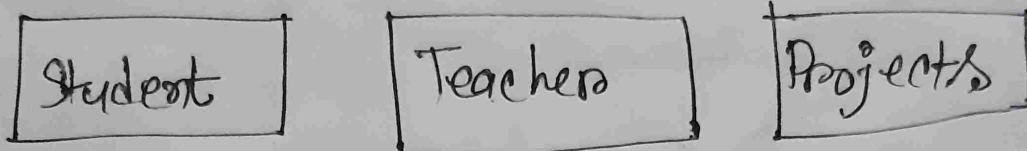 Student Teacher Projects